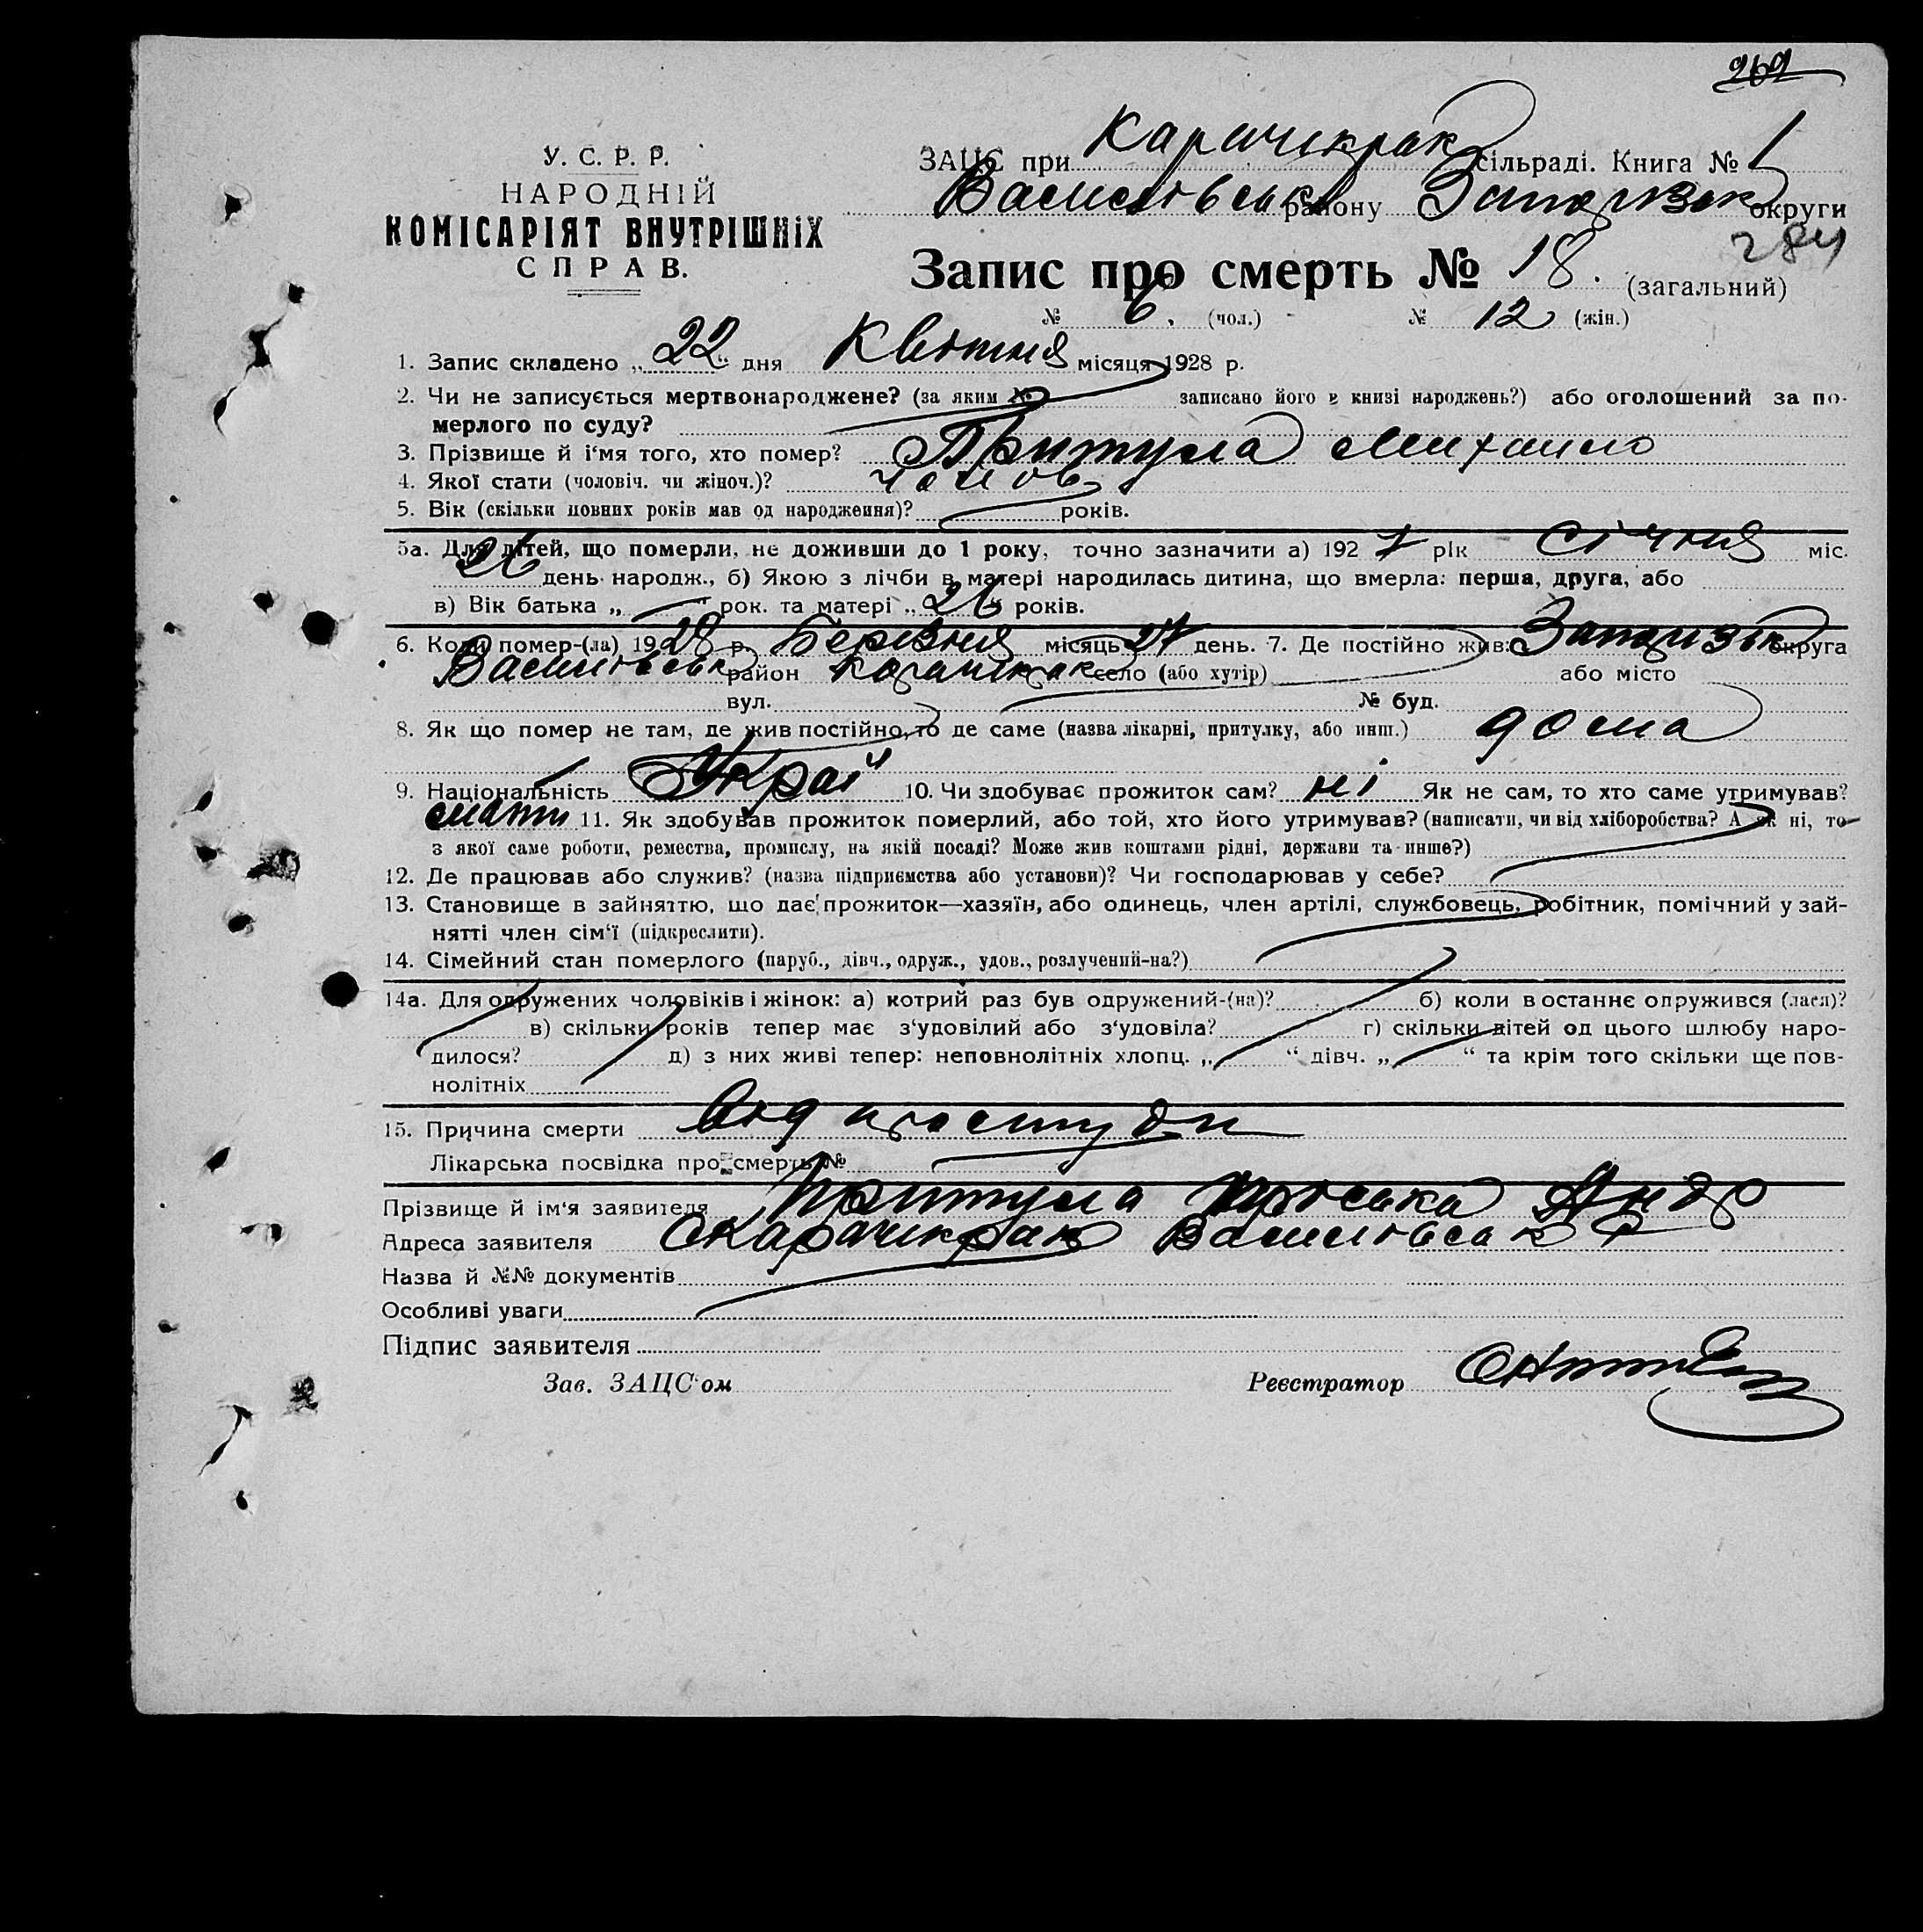 269
У. С. Р. Р.
НАРОДНІЙ
КОМІСАРІЯТ ВНУТРІШНІХ
СПРАВ.
ЗАЦС при Карачикрак сільраді. Книга № 1
Василівськ району Запоризьк округи
284
Запис про смерть № 18. (загальний)
№ 6. (чол.) № 12 (жін.)
1. Запис складено „22“ дня Квітня місяця 1928 р.
2. Чи не записується мертвонароджене? (за яким № записано його в книзі народжень?) або оголошений за по-
мерлого по суду?
3. Прізвище й і'мя того, хто помер? Притула Михайло
4. Якої стати (чоловіч. чи жіноч.)? чолов
5. Вік (скільки повних років мав од народження)? років.
5а. Для дітей, що померли, не доживши до 1 року, точно зазначити а) 1927 рік Січня міс.
26 день народж., б) Якою з лічби в матері народилась дитина, що вмерла: перша, друга, або
в) Вік батька „ “ рок. та матері „26“ років.
6. Коли помер-(ла) 1928 р. Березня місяць 27 день. 7. Де постійно жив: Запоризьк округа
Василівськ район Карачикрак село (або хутір) або місто
вул. № буд.
8. Як що помер не там, де жив постійно, то де саме (назва лікарні, притулку, або инш.) дома
9. Національність Украї 10. Чи здобуває прожиток сам? ні Як не сам, то хто саме утримував?
мати 11. Як здобував прожиток померлий, або той, хто його утримував? (написати, чи від хліборобства? А як ні, то
з якої саме роботи, ремества, промислу, на якій посаді? Може жив коштами рідні, держави та инше?)
12. Де працював або служив? (назва підприємства або установи)? Чи господарював у себе?
13. Становище в зайняттю, що дає прожиток—хазяїн, або одинець, член артілі, службовець, робітник, помічний у зай-
нятті член сім'ї (підкреслити).
14. Сімейний стан померлого (паруб., дівч., одруж., удов., розлучений-на?)
14а. Для одружених чоловіків і жінок: а) котрий раз був одружений-(на)? б) коли востаннє одружився (лася)?
в) скільки років тепер має з'удовілий або з'удовіла? г) скільки дітей од цього шлюбу наро-
дилося? д) з них живі тепер: неповнолітніх хлопц. „ “ дівч. „ “ та крім того скільки ще пов-
нолітніх
15. Причина смерти Від простуди
Лікарська посвідка про смерть №
Прізвище й ім'я заявителя Притула
Адреса заявителя С Карачикрак Василівськ Р
Назва й №№ документів
Особливі уваги
Підпис заявителя
Зав. ЗАЦС'ом Реєстратор